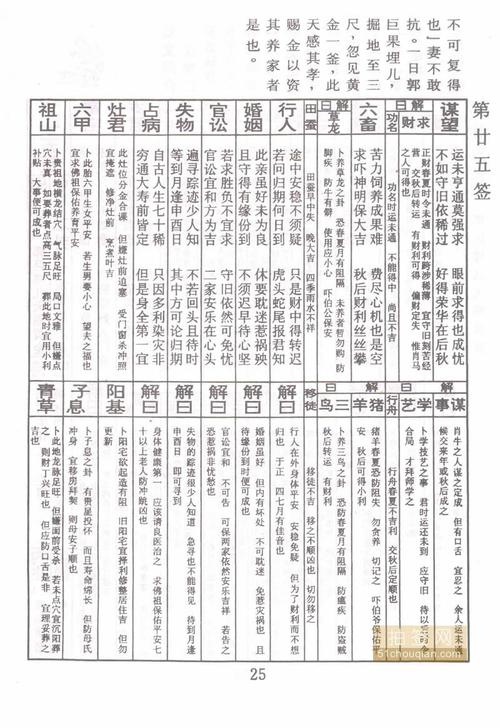 不可复得
也”妻不敢
抗。一日郭
巨果埋儿，
掘地至三
尺，忽见黄
金一釜，此
天感其孝，
赐金以资
其养家者
是也。
第廿五签
谋望
运未亨通莫强求
眼前求得也成忧
不如守旧依稀过
好得荣华在后秋
求财
解曰
功名
正财春夏时令未通
财利跨涉稀薄
宜守旧刻苦经
营
交秋后转运
有财利可得
偏财定失
惟肖马
之人可得也
功名时运未通
不能得中
尚且不吉
六畜
苦力饲养成果难
费尽心机也是空
求吓神明保大吉
秋后财利丝丝攀
解曰
草龙
卜养草龙之卦
恐春夏月有阻隔
未养者暂勿购
防
脚疾
防牛有癖
使用应小心
吓伯公保安
田蚕
田蚕早中失
晚大吉
四季雨水不祥
行人
途中安稳不须疑
只是财中得转迟
若问归期何日到
虎头蛇尾报君知
婚姻
此亲虽好未为良
休要耽迷惹祸殃
且守得有缘份到
不须迟早待心坚
官讼
若求胜负不宜求
守旧依然可免忧
官讼宜和方为吉
二家安乐在心头
失物
遍寻踪迹少人知
不若回头且待时
等到月逢申酉日
其中方可论归期
占病
自古人生七十稀
只因多利染灾非
穷通大寿前皆定
但是身全第一宜
灶君
此灶位分金合课
但嫌灶前迫塞
受门窗杀冲照
宜掩遮
修净灶前
烹煮叶吉
六甲
卜此胎六甲生女平安
若生男要小心
望夫之福也
宜求佛祖保佑养育平安
祖山
卜贵祖地潮龙结穴
气脉足旺
局口文雅
但嫌点
穴未真
如要葬者点高三五尺
葬此地时宜用小利
补贴
大事便可成也
谋事
肖牛之人谋之定成
但有口舌
宜忍之
余人运未通
候交来年或秋后成之
学艺
解曰
行舟
卜学技艺之事
君时运还未到
应守旧
待秋以后令
合局
才拜师学之
行舟春夏不吉利
交秋后定顺也
猪羊
猪羊春夏恐防阻失
勿贪养
切记之
吓伯爷保佑平
安
秋后有财利
解曰
三鸟
卜养三鸟之卦
恐防春夏月有阻隔
防瘟疾
防盗贼
秋后转运
有财利
移徙
移徙不大吉
移之不顺凶也
切勿移之
解曰
行人在外身体平安
安稳免疑
但为了财利而不想
归也
于正
四七月有佳音也
解曰
婚姻虽好
但内有坏处
不可耽迷
免惹灾祸也
且
待缘份到时便可成
解曰
官讼宜和
不可告
可保两家依然安乐吉祥
若告之
恐惹祸非忧愁也
解曰
失物的踪迹很少人知道
急寻也不能得见
待到月逢
申酉日
即可寻到
解曰
身体健康第一
应该请良医治之
求佛祖保佑平安七
十以上老人防冲眺凶也
阳基
卜阳宅欲起造有阻
旧阳宅宜择利修整居住吉
但勿
更新
子息
卜子息之卦
有贵星投怀
而且寿命绵长
但防母氏
冲身
宜移房拜契
则母安子顺也
青草
卜此地龙脉足旺
但嫌面前受杀
若未点穴宜沉阳葬
之
则财丁兴旺也
但应防口舌是非
宜理妥葬之
吉也
25
抽签网
51chouqian.com